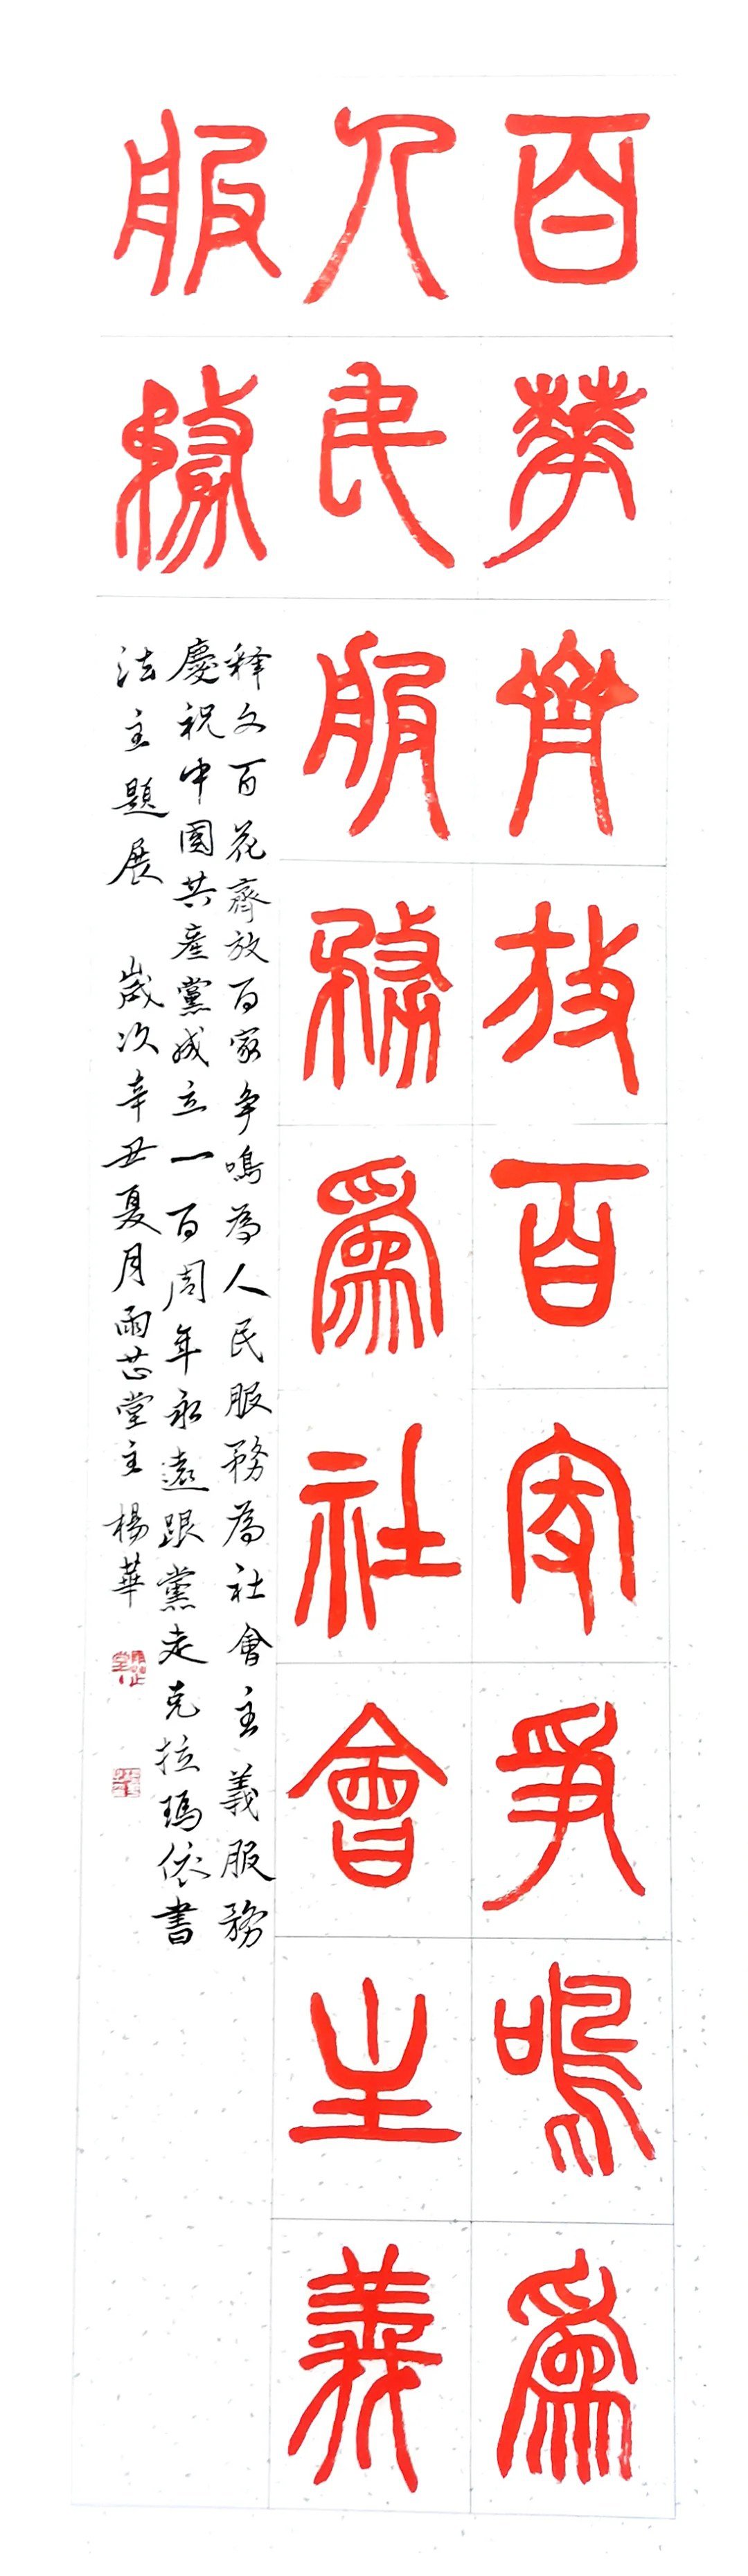 百華齊放百家爭鳴為
人民服務為社會主義
服務
释文百花齊放百家争鳴為人民服務為社會主義服務
慶祝中國共產黨成立一百周年永遠跟黨走克拉瑪依書
法主題展 歲次辛丑夏月雨芯堂主楊華